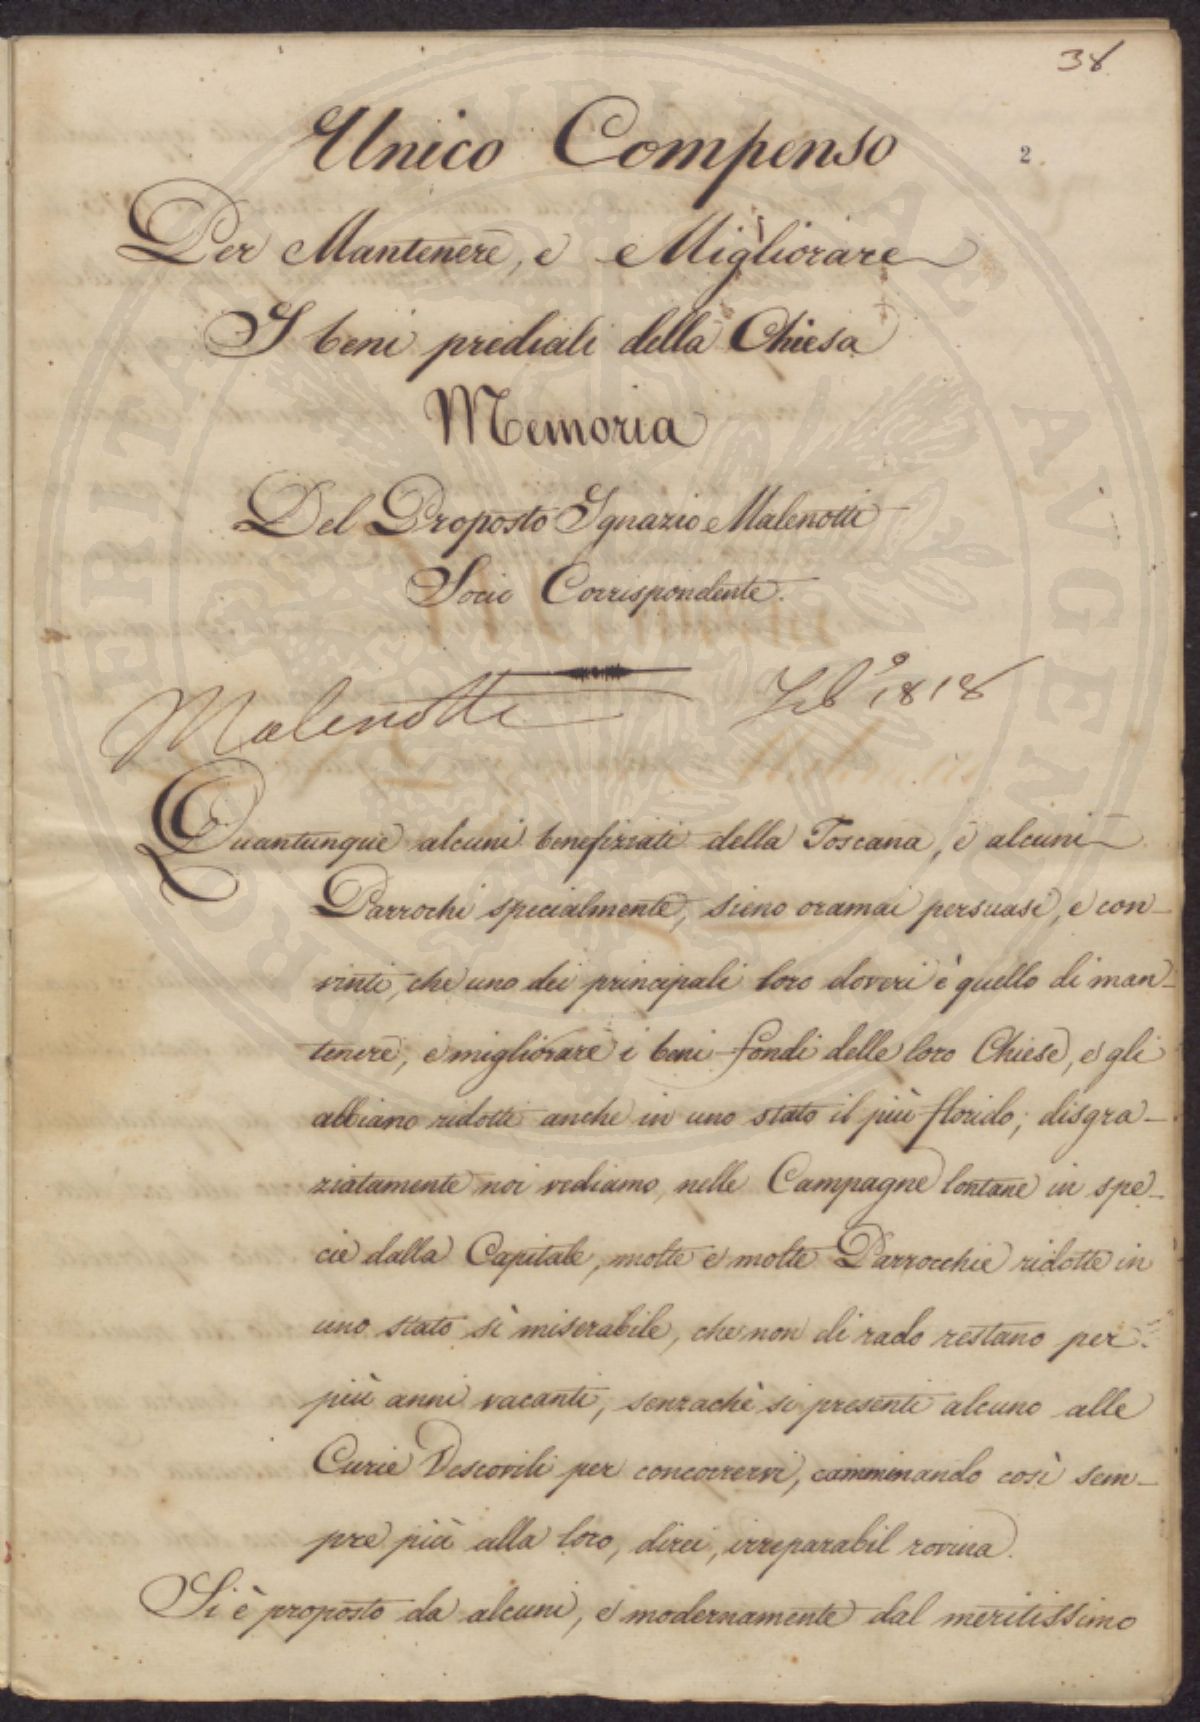 38
Unico Compenso
2
Per Mantenere, e Migliorare
I beni prediali della Chiesa
Memoria
Del Proposto Ignazio Malenotti
Socio Corrispondente.
Malenotti Feb.º 1818
Quantunque alcuni benefiziati della Toscana, e alcuni
Parrochi specialmente, sieno oramai persuasi, e con-
vinti, che uno dei principali loro doveri è quello di man-
tenere, e migliorare i beni-fondi delle loro Chiese, e gli
abbiano ridotti anche in uno stato il più florido; disgra-
ziatamente noi vediamo, nelle Campagne lontane in spe-
cie dalla Capitale, molte e molte Parrocchie ridotte in
uno stato sì miserabile, che non di rado restano per
più anni vacanti, senzachè si presenti alcuno alle
Curie Vescovili per concorrervi, camminando così sem-
pre più alla loro, direi, irreparabil rovina.
Si è proposto da alcuni, e modernamente dal meritissimo
PROSPERITATI PVBLICAE AVGENDAE